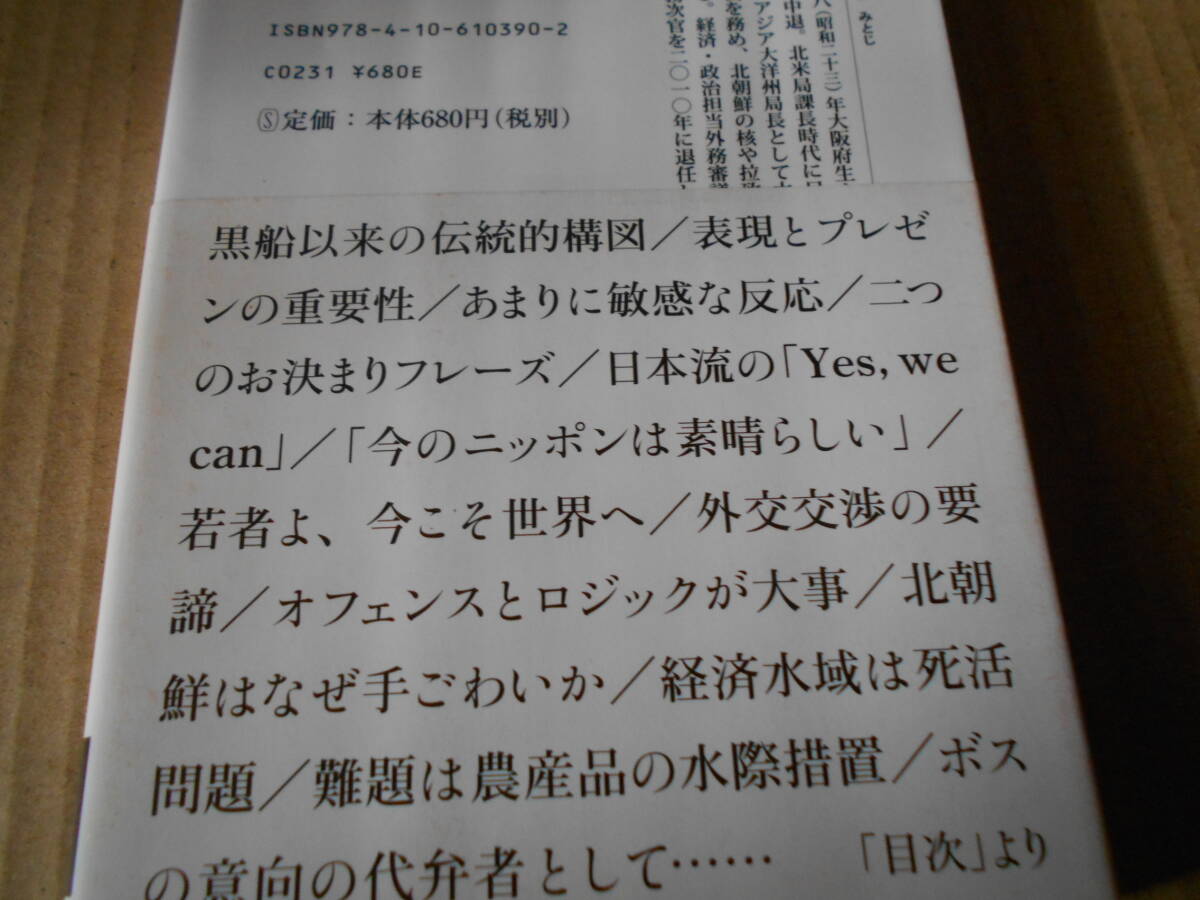 ISBN978-4-10-610390-2
C0231 ¥680E
Ⓢ定価：本体680円（税別）
みとじ
八（昭和二十三）年大阪府生
中退。北米局課長時代に
アジア大洋州局長として
を務め、北朝鮮の核や拉致
。経済・政治担当外務審議
次官を二〇一〇年に退任
黒船以来の伝統的構図／表現とプレゼ
ンの重要性／あまりに敏感な反応／二つ
のお決まりフレーズ／日本流の「Yes, we
can」／「今のニッポンは素晴らしい」／
若者よ、今こそ世界へ／外交交渉の要
諦／オフェンスとロジックが大事／北朝
鮮はなぜ手ごわいか／経済水域は死活
問題／難題は農産品の水際措置／ボス
の意向の代弁者として……
「目次」より